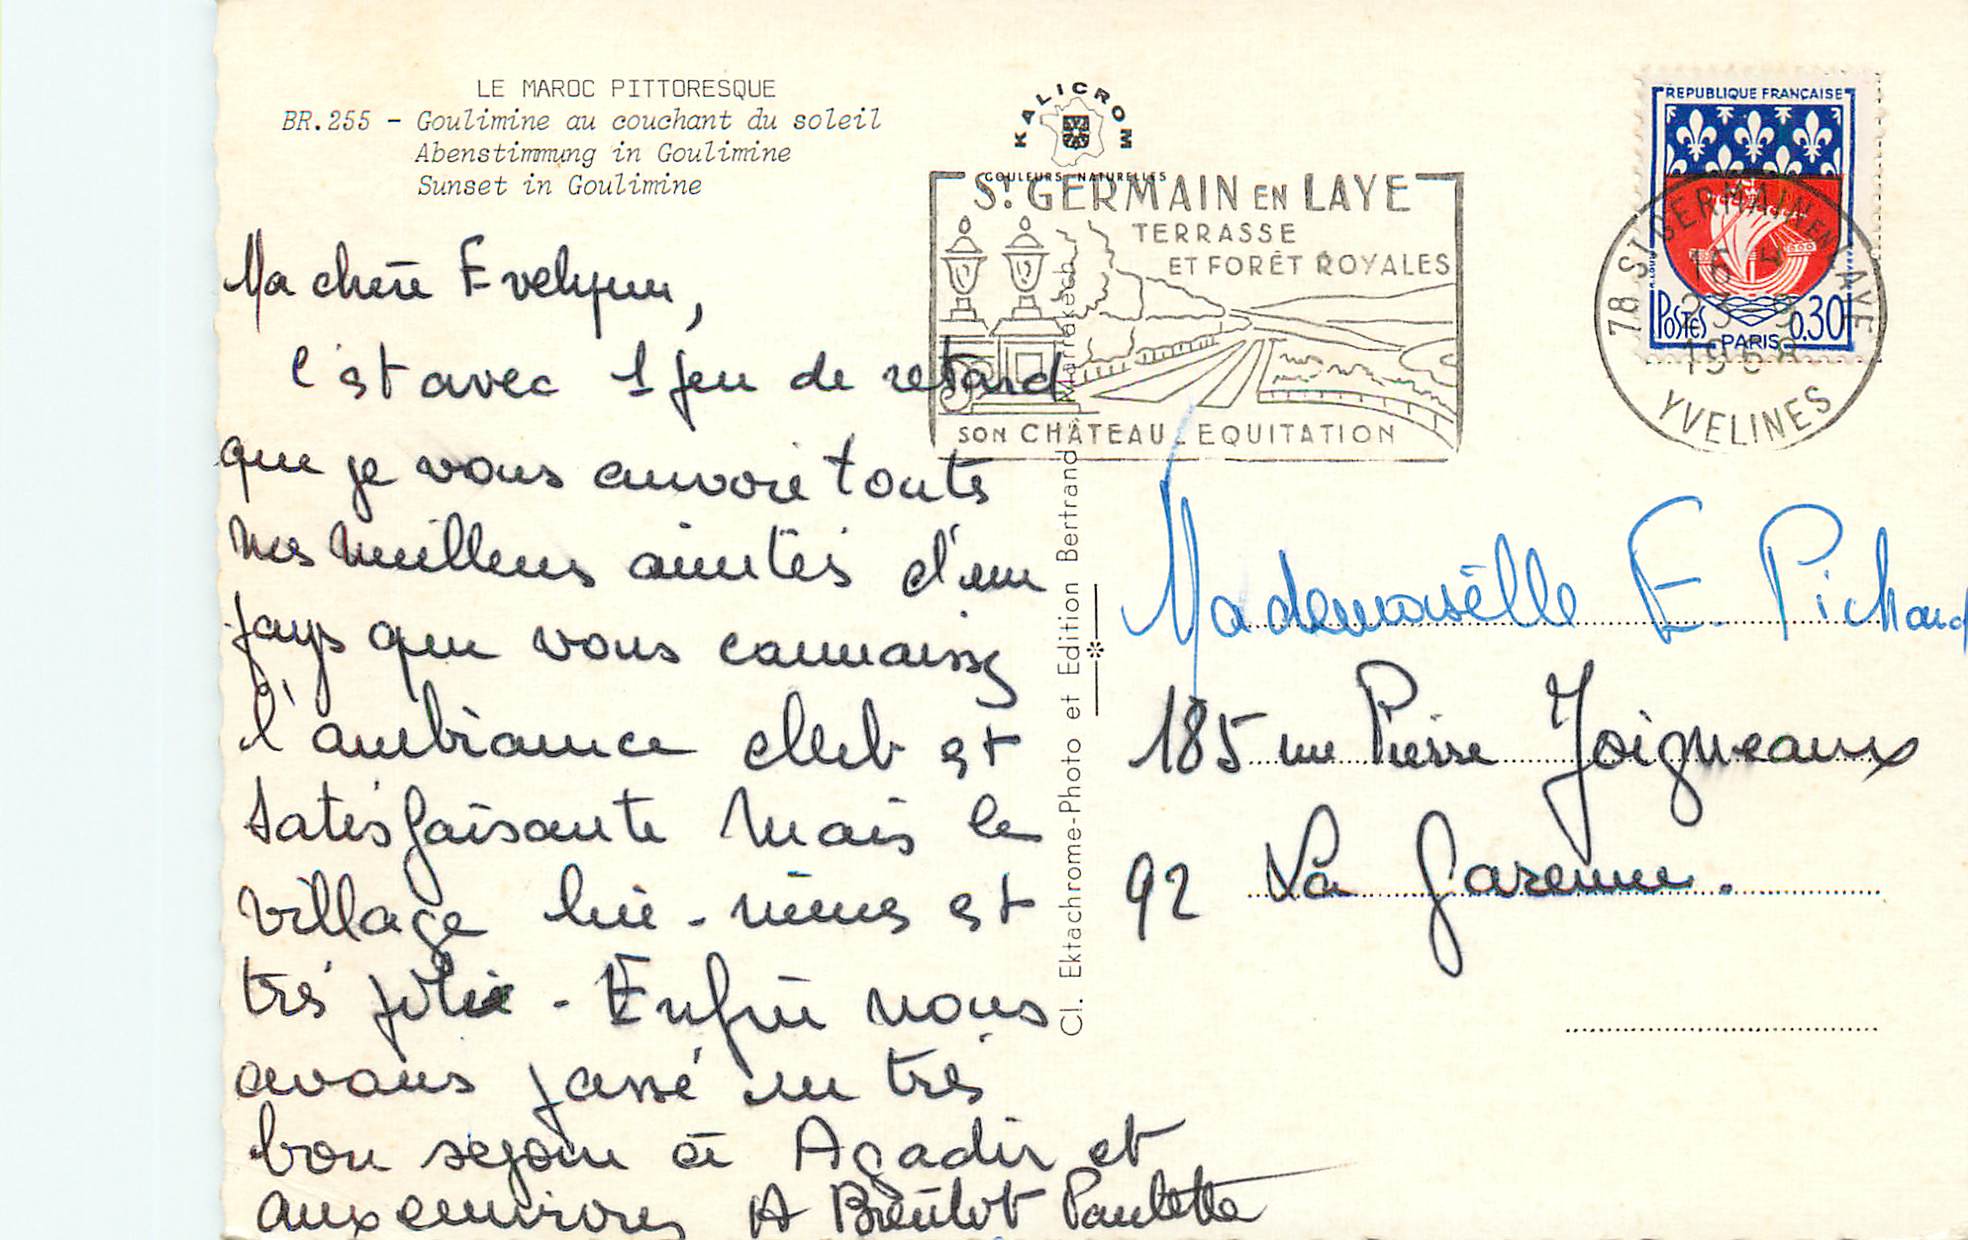 LE MAROC PITTORESQUE
BR.255 - Goulimine au couchant du soleil
Abenstimmung in Goulimine
Sunset in Goulimine
KALICROM
COULEURS NATURELLES
ST GERMAIN EN LAYE
TERRASSE
ET FORÊT ROYALES
SON CHÂTEAU _ EQUITATION
REPUBLIQUE FRANÇAISE
POSTES PARIS 0.30
78 ST GERMAIN EN LAYE
16 H
23-9
1968
YVELINES
Ma chère Evelyne,
C'est avec 1 peu de retard
que je vous envoie toute
mes meilleurs amitiés d'un
pays que vous connaissez
l'ambiance club est
satisfaisante mais le
village lui-même est
très jolie - Enfin nous
avons passé un très
bon sejour à Agadir et
aux environs A Bientot Paulette
Cl. Ektachrome-Photo et Edition Bertrand - Marrakech
Mademoiselle E. Pichard
185 rue Pierre Joigneaux
92 La Garenne.